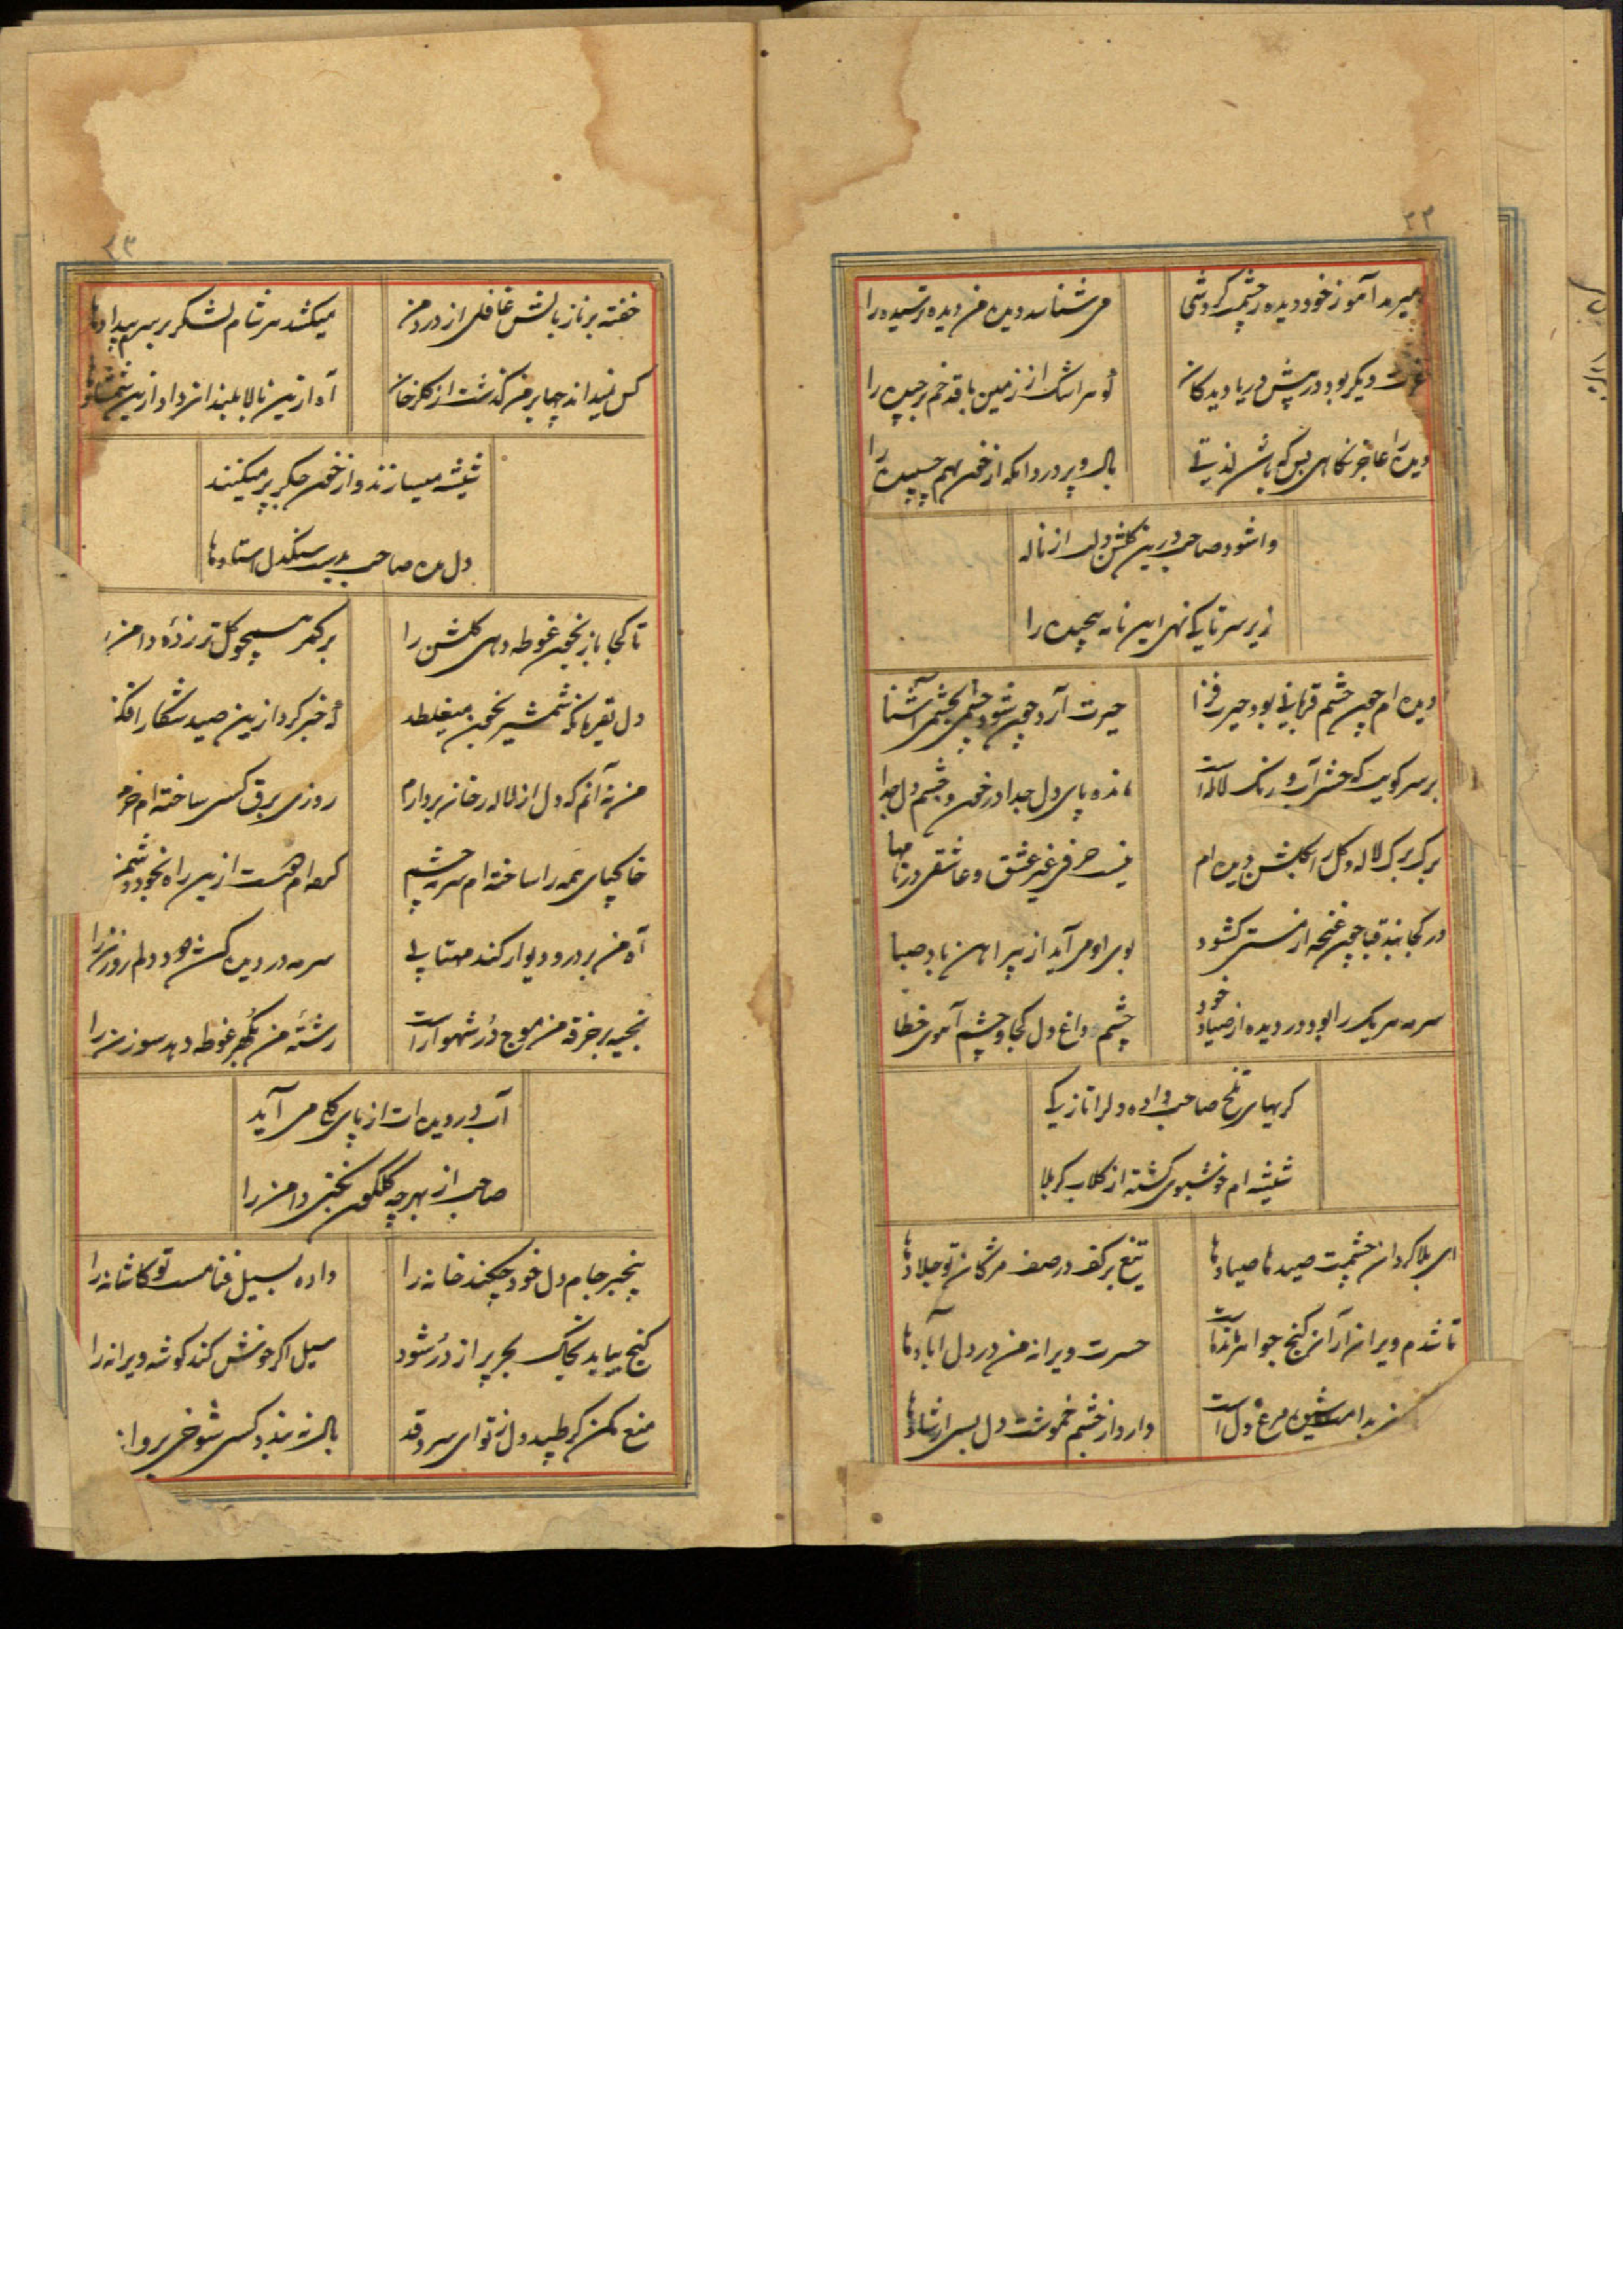 می شناسد دیده من دیده ترسیده را
عزت دیگر بود در پیش دریا دیدگان
گوهر اشک از زمین با قد خم برچیده را
بال و پر در دامگه از خون بهم چسپیده را
وا شود صاحب درین گلشن دلت از ناله
زیر سر تا کی نهی این نامه پیچیده را
دیده ام چون چشم قربانی بود حیرت فزا
حیرت آرد چون شود چشمی بچشمی آشنا
بر سر کویت که حشر آب و رنگ لاله است
مانده پای دل جدا در خون و چشم دل جدا
برگ برگ لاله و گل را بگلشن دیده ام
نیست حرفی غیر عشق و عاشقی در نامها
در کجا بند قبا چون غنچه از مستی کشود
بوی او می آید از پیراهن باد صبا
سرمه هر یک را بود در دیده از صیاد خود
چشم و داغ دل کجا و چشم آهوی خطا
گریهای تلخ صاحب داده دل را تازگی
شیشه ام خوشبوی گشته از گلاب کربلا
ای بلا گردان چشمت صیدها صیادها
تیغ بر کف در صف مژگان تو جلادها
تا شدم ویران از آن گنج جواهر
حسرت ویرانه من در دل آبادها
دارد از چشم خموشت دل بسی ارشادها
۲۳
خفته بر ناز بالش غافلی از درد من
میکشد هر شام لشکر بر سرم بیدادها
کس نمیداند چها بر من گذشت از گلرخان
آه ازین بالا بلندان داد ازین شمشادها
شیشه میسازند و از خون جگر پر میکنند
دل مده صاحب بدست سنگدل استادها
تا کجا باز بخون غوطه دهی گلشن را
بر کمر همچو گل تر زده دامن را
که خبر کرد ازین صید شکار افکن
من نه آنم که دل از لاله رخان بردارم
روزی برق کسی ساخته ام خرمن
خاکپای همه را ساخته ام سرمه چشم
کرده ام هست ازین راه بخود دشمن
آه من بر در و دیوار کند مهتابی
سرمه در دیده کشد دود دلم روزن را
بخیه بر خرقه من موج در شهوار است
رشته من بگهر غوطه دهد سوزن را
آب در دیده ات از پای که می آید
صاحب از بهر چه گلگون نکنی دامن را
بیخبر جام دل خود چکند خانه را
داده سیل فنا مست تو کاشانه را
گنج بیاید بخاک بحر پر از در شود
سیل اگر خونش کند گوشه ویرانه را
منع مکن گر طپید دل ز تو ای سرو قد
بال نه بندد کسی شوخی پروانه